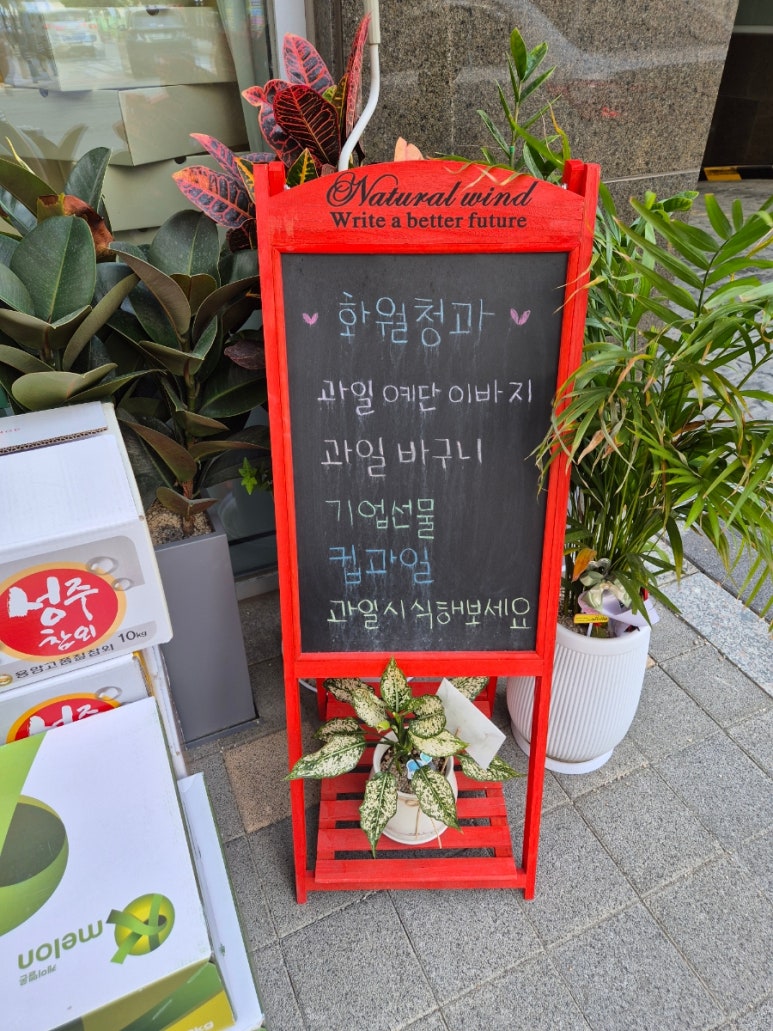 Natural wind
Write a better future
화월청과
과일 예단 이바지
과일 바구니
기업선물
컵과일
과일시식해보세요
성주
참외
10kg
용암고품질참외
melon
케이멜론